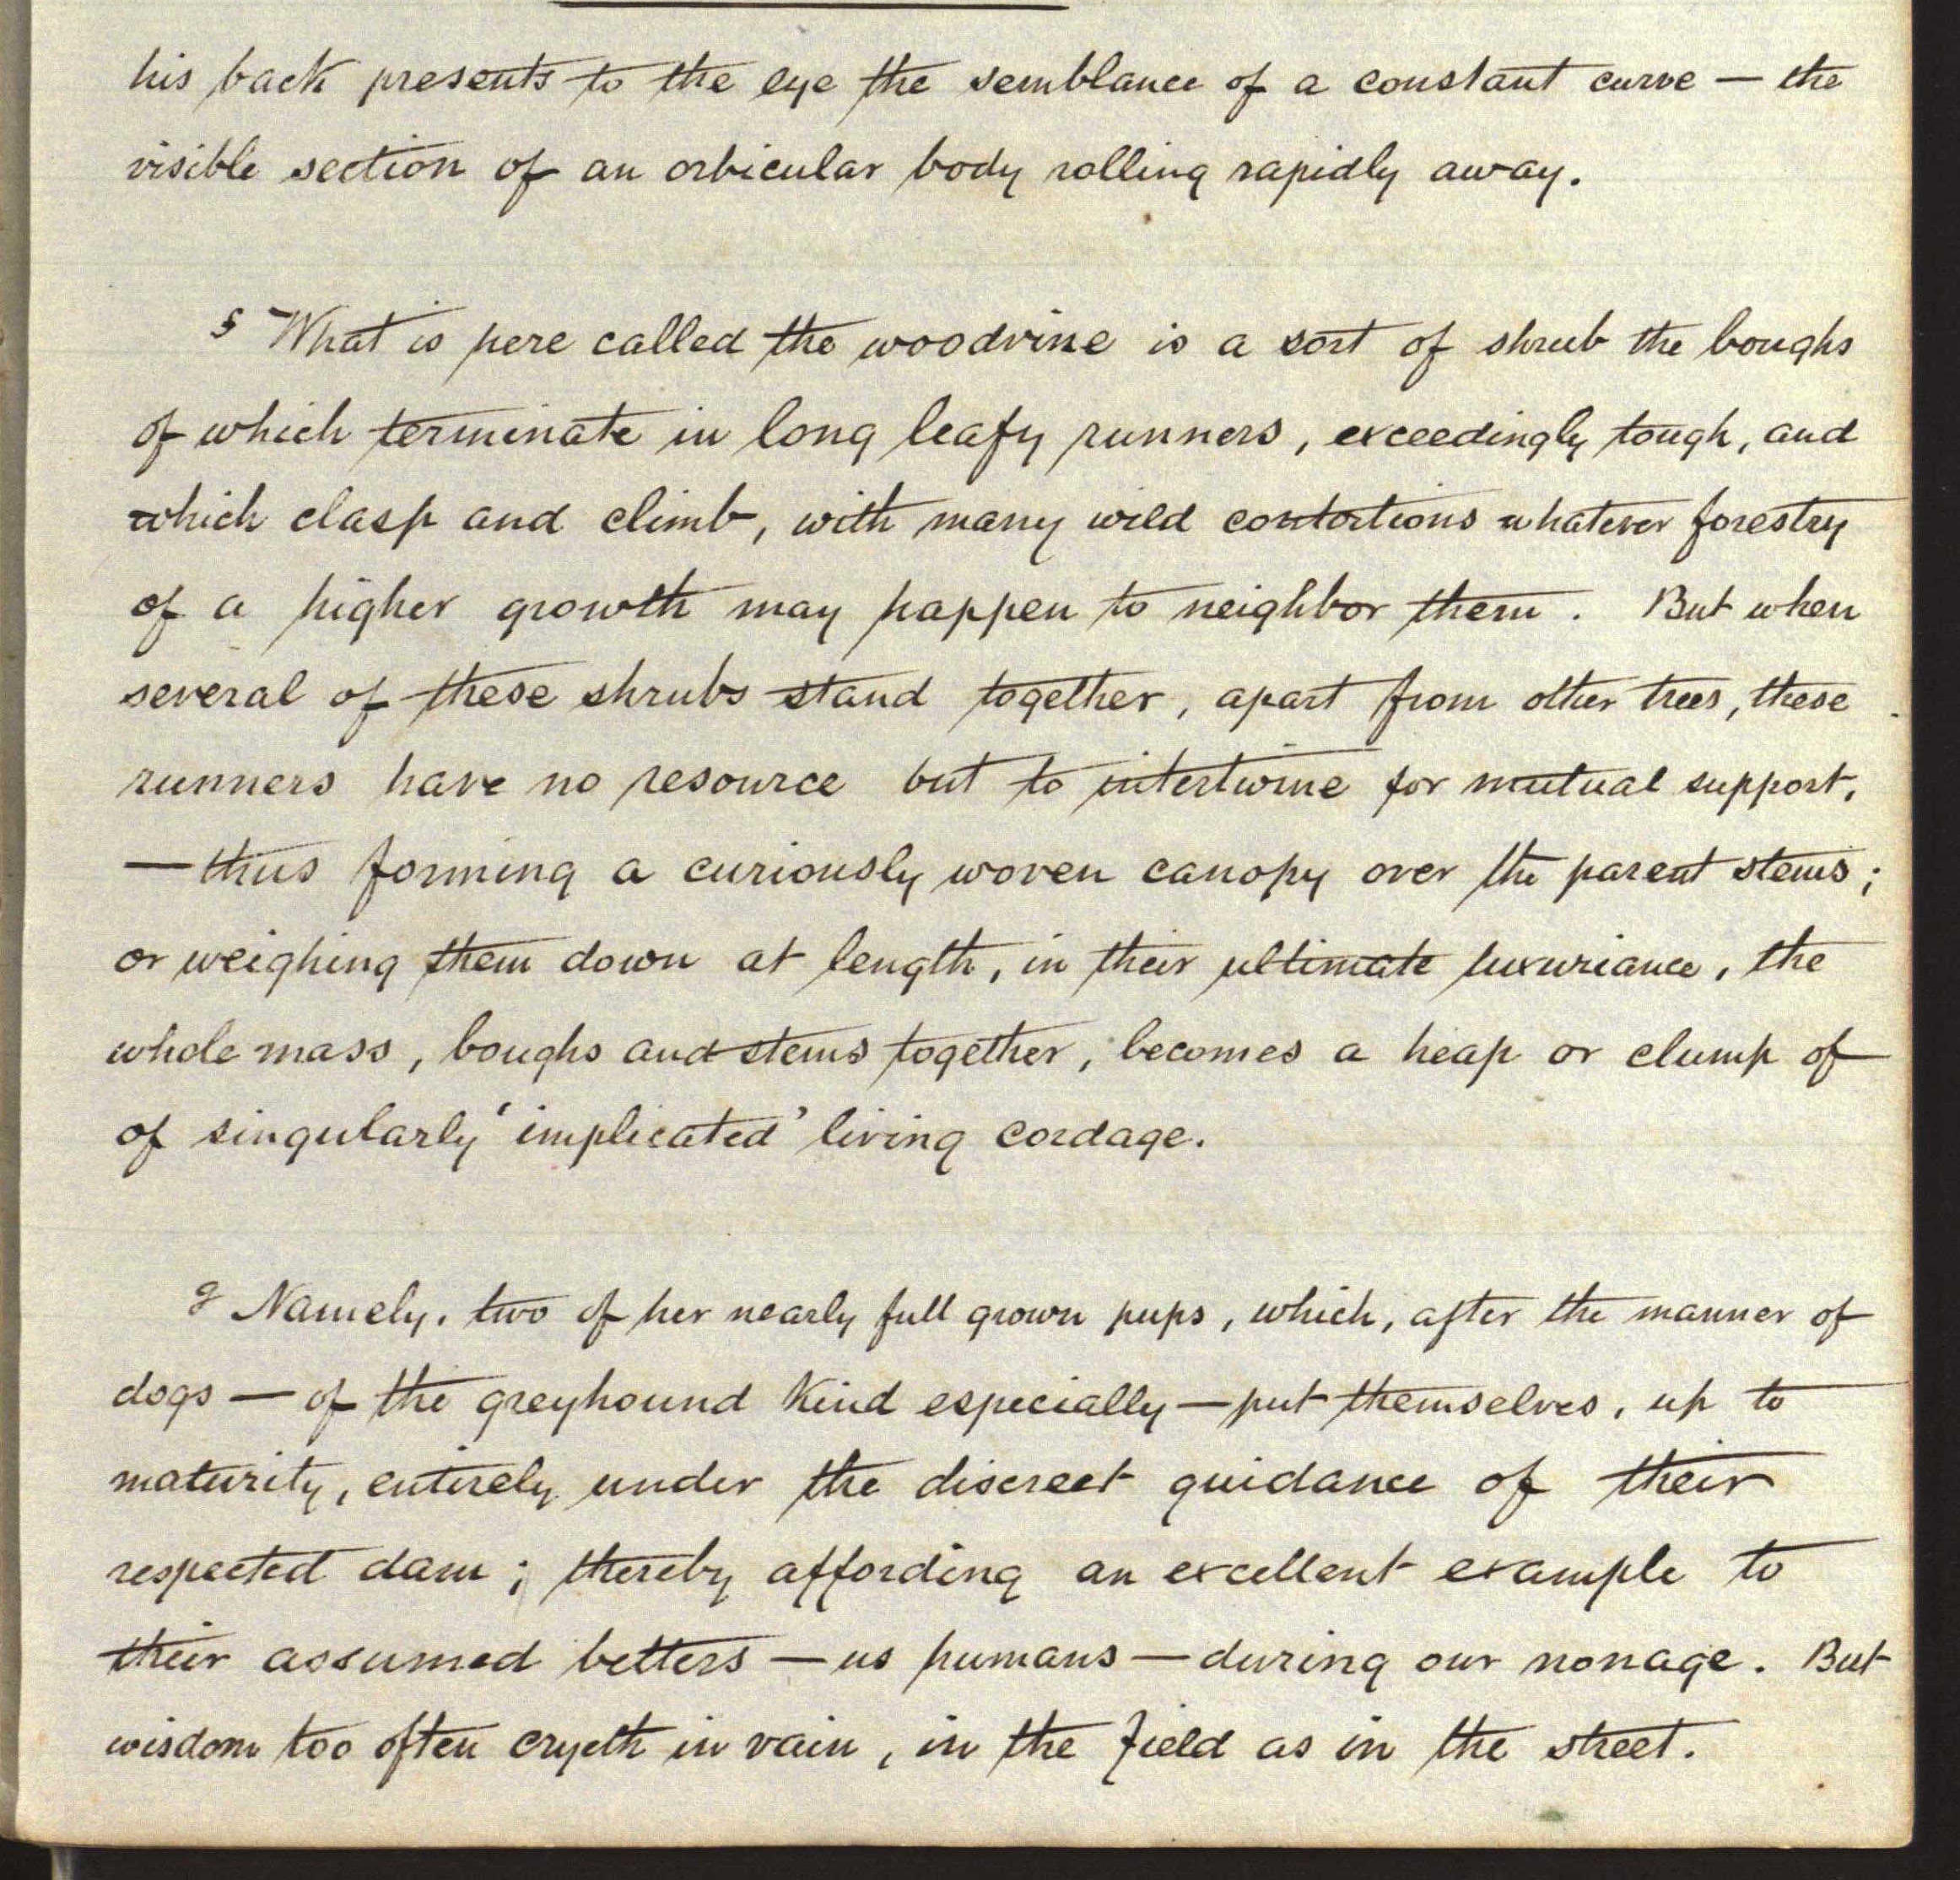 his back presents to the eye the semblance of a constant curve — the
visible section of an orbicular body rolling rapidly away.
§ What is here called the woodvine is a sort of shrub the boughs
of which terminate in long leafy runners, exceedingly tough, and
which clasp and climb, with many wild contortions whatever forestry
of a higher growth may happen to neighbor them. But when
several of these shrubs stand together, apart from other trees, these
runners have no resource but to intertwine for mutual support,
— thus forming a curiously woven canopy over the parent stems;
or weighing them down at length, in their ultimate luxuriance, the
whole mass, boughs and stems together, becomes a heap or clump of
of singularly 'implicated' living cordage.
Namely, two of her nearly full grown pups, which, after the manner of
dogs — of the greyhound kind especially — put themselves, up to
maturity, entirely under the discreet guidance of their
respected dam; thereby affording an excellent example to
their assumed betters — us humans — during our nonage. But
wisdom too often cryeth in vain, in the field as in the street.